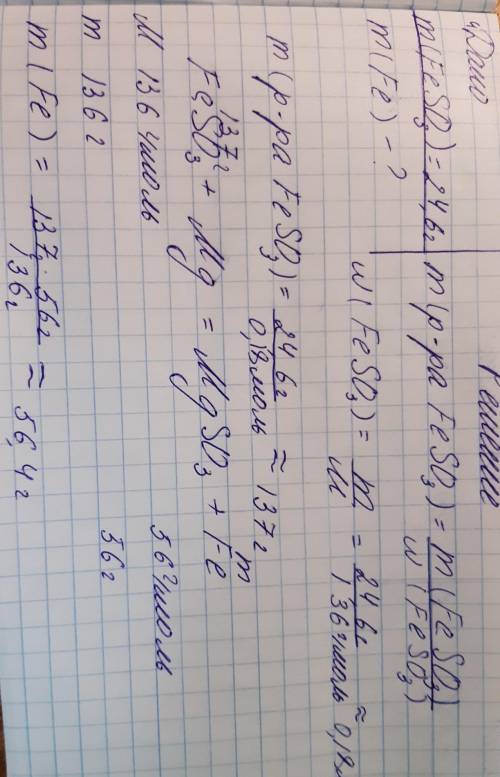 Решение
Дано
m(FeSO3) = 24,6г
m(Fe) - ?
m(р-ра FeSO3) = m(FeSO3) / w(FeSO3)
w(FeSO3) = m / M = 24,6г / 136г/моль ≈ 0,18м
m(р-ра FeSO3) = 24,6г / 0,18моль ≈ 137г
137г m
FeSO3 + Mg = MgSO3 + Fe
M 136г/моль 56г/моль
m 136г 56г
m(Fe) = 137г · 56г / 136г ≈ 56,4г